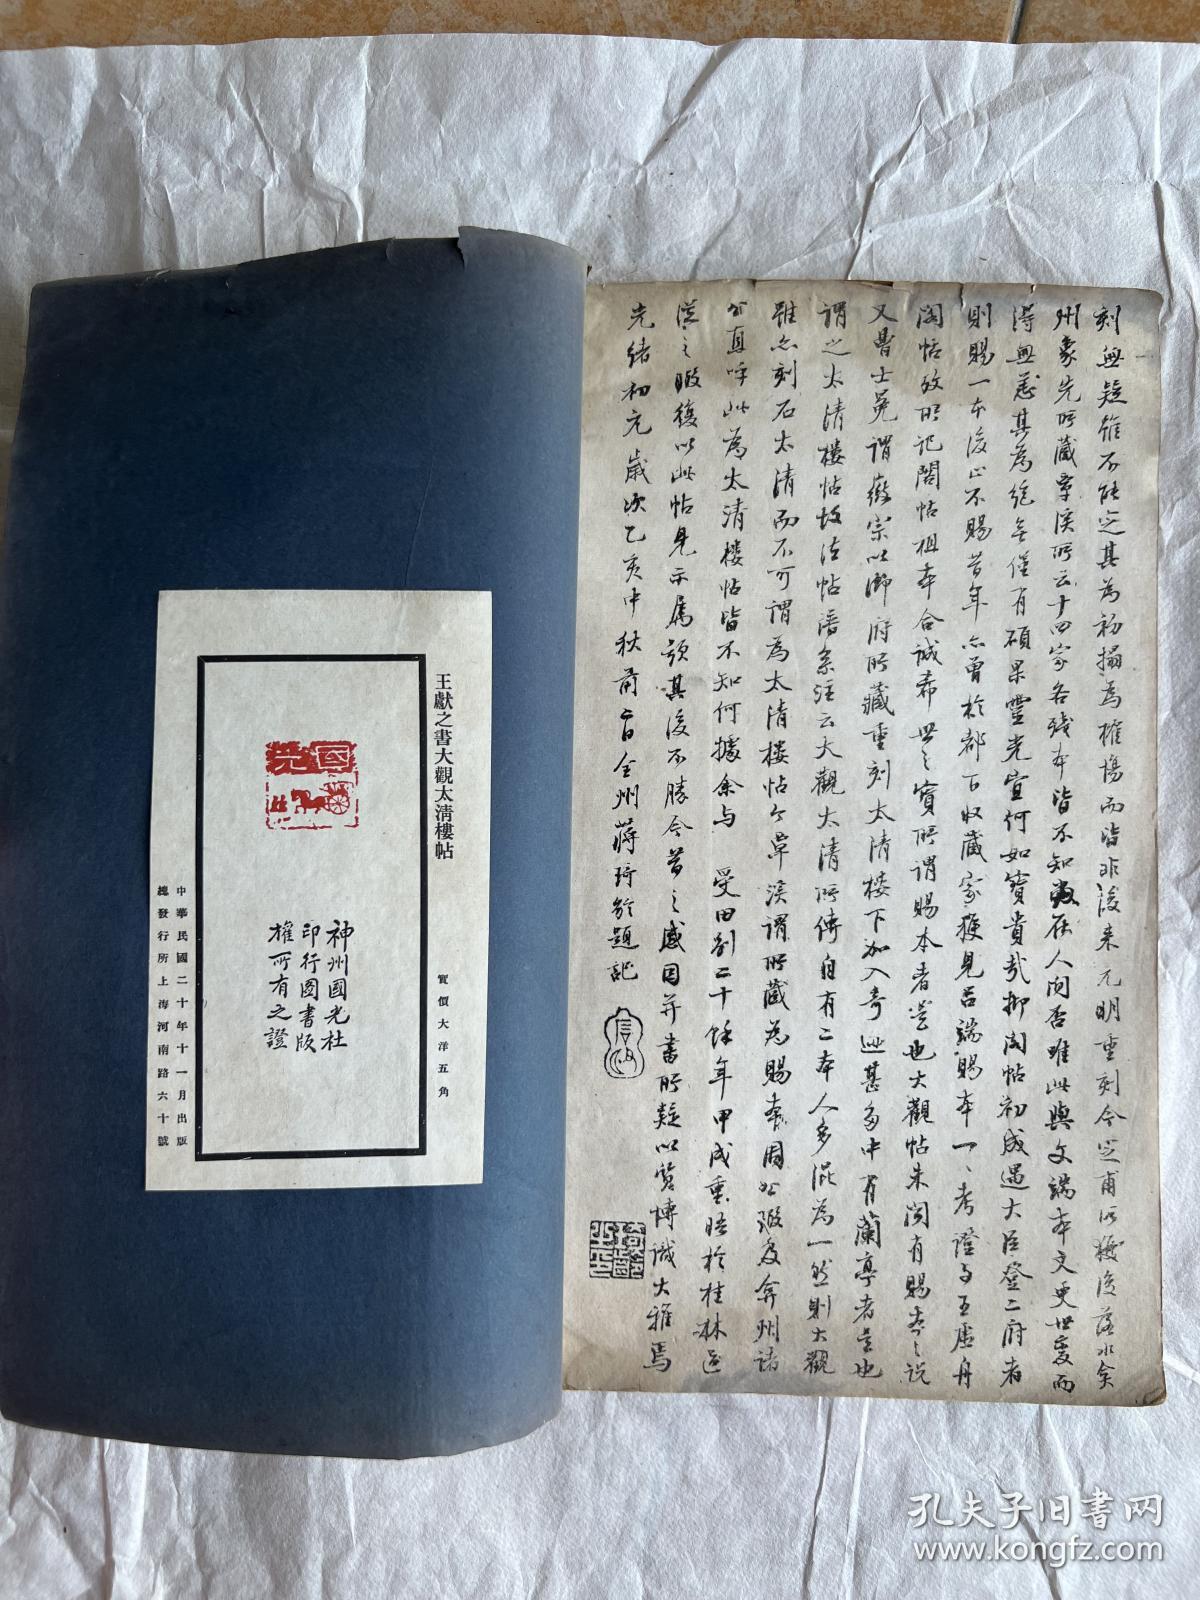 刻無疑雖不能定其為初搨為榷場而皆非後來元明重刻今芝甫所獲後落水矣
州象先所藏覃溪所云十四家各殘本皆不知尚在人间否唯此與文端本文史世愛而
得無恙其為絕無僅有碩果靈光宜何如寶貴哉抑阁帖初成遇大臣登二府者
則賜一本後止不賜昔年亦曾於都下收藏家獲見吕端賜本一一考證与王虚舟
阁帖攷所记閣帖祖本合誠希世之寶所謂賜本者是也大觀帖未闻有賜本之説
又曾士冕謂徽宗以御府所藏重刻太清楼下加入者 甚多中有蘭亭者是也
謂之太清楼帖故法帖譜系注云大觀太清所傳自有二本人多混為一然則大觀
雖亦刻石太清而不可謂為太清楼帖今草溪謂所藏為賜本固 弇州諸
公直呼此為太清楼帖皆不知何據余与 受田别二十餘年甲戌重晤於桂林
之暇復以此帖見示属題其後不勝今昔之感因并書所疑以質博識大雅焉
光绪初元歲次乙亥中秋前一日全州蔣琦龄題記
王獻之書大觀太清樓帖
實價大洋五角
國光
神州國光社
印行圖書版
權所有之證
中華民國二十年十一月出版
總發行所上海河南路六十號
孔夫子旧书网
www.kongfz.com